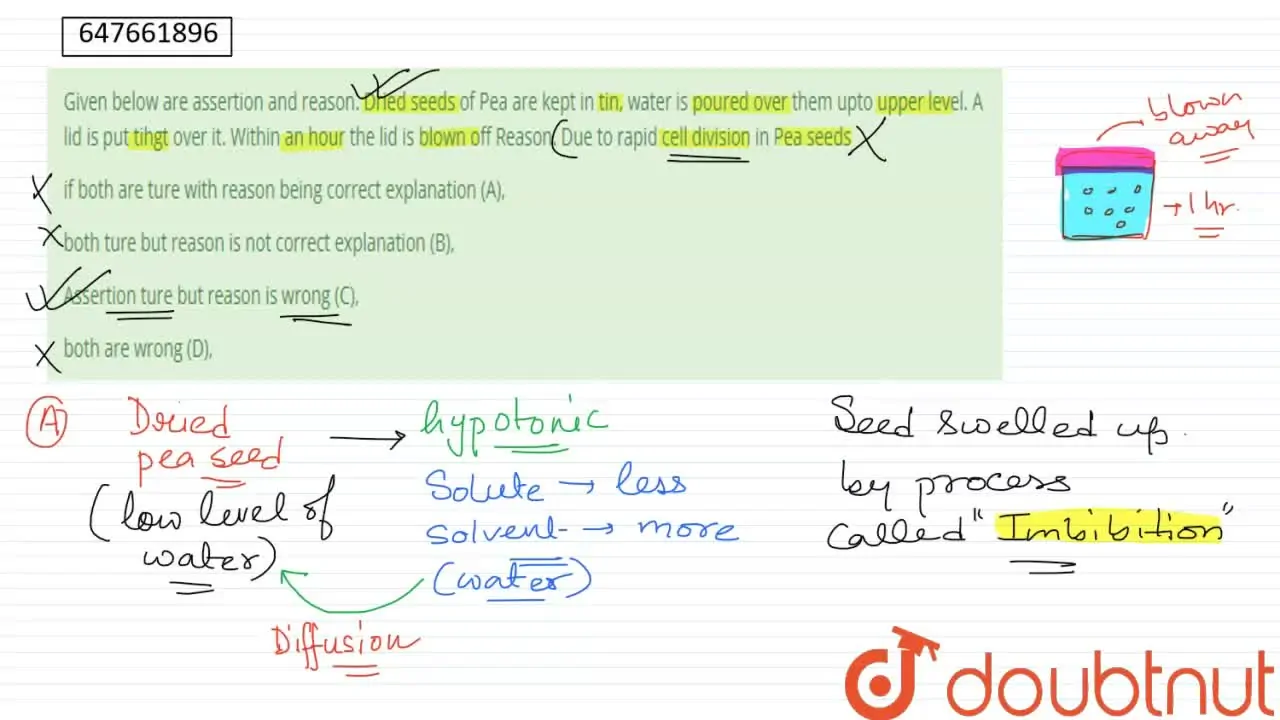 647661896
Given below are assertion and reason. Dried seeds of Pea are kept in tin, water is poured over them upto upper level. A
lid is put tihgt over it. Within an hour the lid is blown off Reason. Due to rapid cell division in Pea seeds
if both are ture with reason being correct explanation (A),
both ture but reason is not correct explanation (B),
Assertion ture but reason is wrong (C),
both are wrong (D),
blown
away
1 hr.
(A) Dried
pea seed
(low level of
water)
hypotonic
Solute → less
Solvent → more
(water)
Diffusion
Seed swelled up.
by process
called "Imbibition"
doubtnut